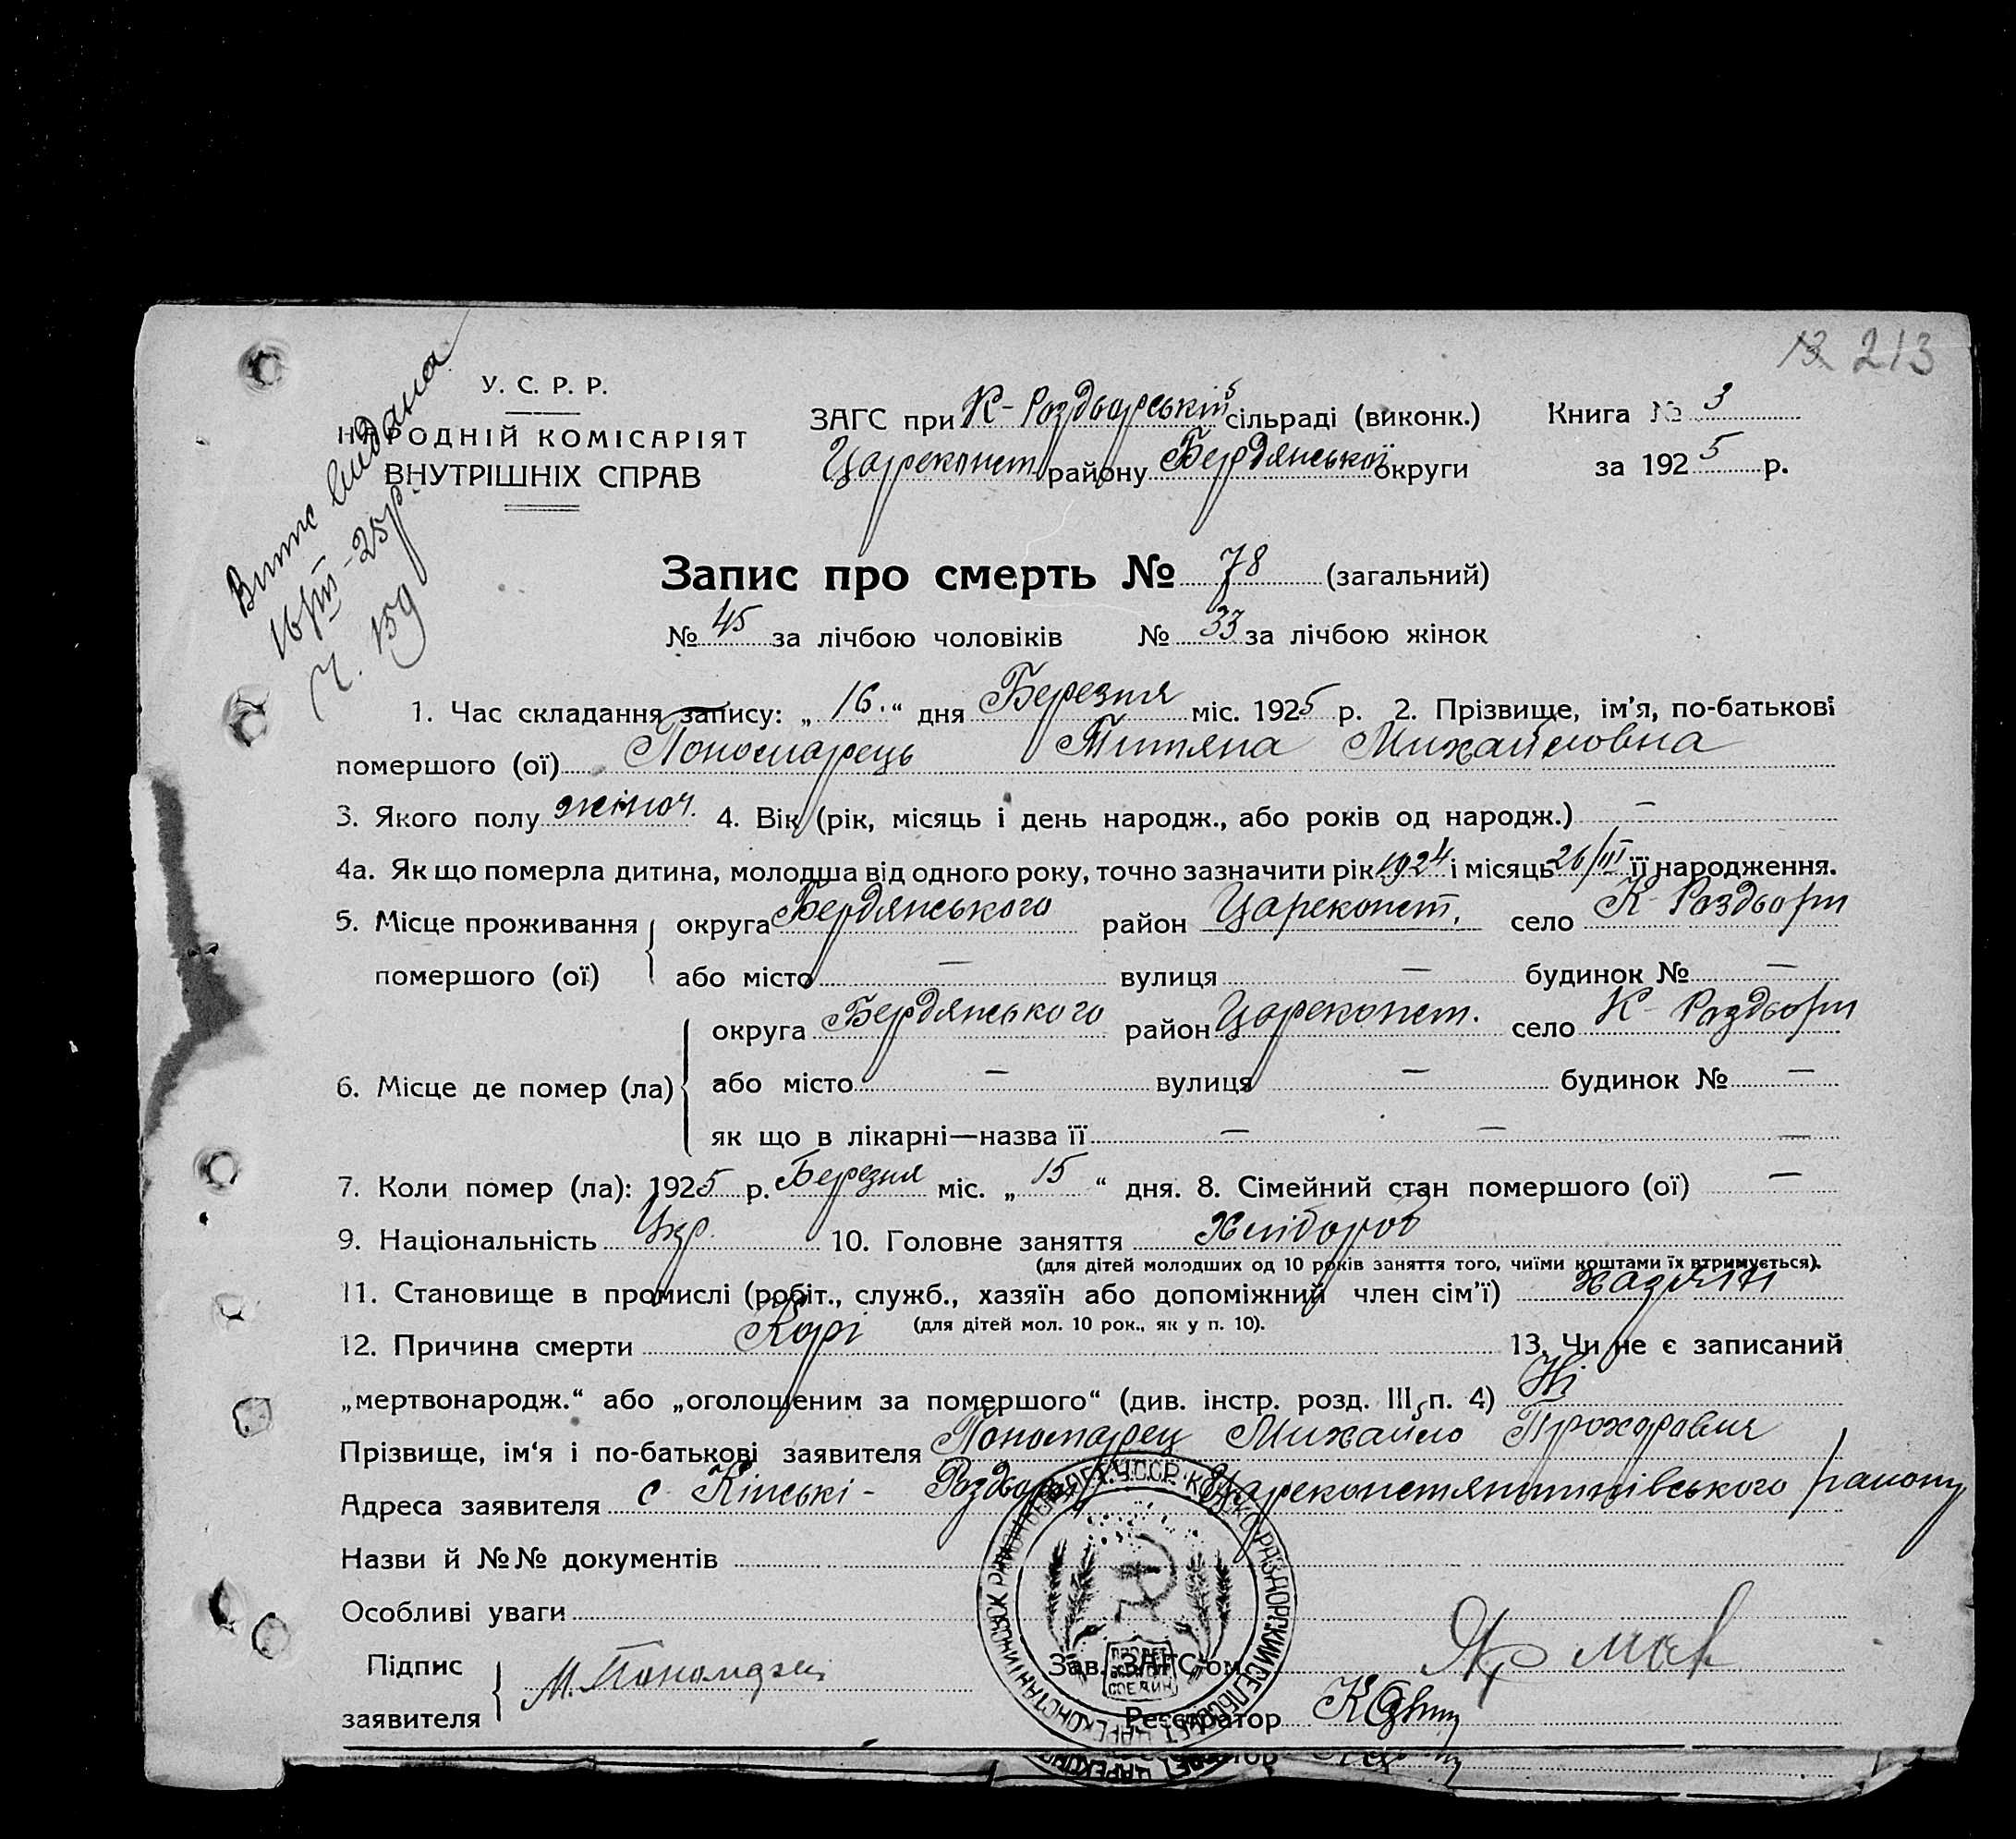 13 213
Витяг видана
16/III-25р.
Ч. 159
У. С. Р. Р.
НАРОДНІЙ КОМІСАРІЯТ
ВНУТРІШНІХ СПРАВ
ЗАГС при К-Роздорській сільраді (виконк.) Книга № 3
Цареконст району Бердянської округи за 1925 р.
Запис про смерть № 78 (загальний)
№ 45 за лічбою чоловіків № 33 за лічбою жінок
1. Час складання запису: „ 16. “ дня Березня міс. 1925 р. 2. Прізвище, ім’я, по-батькові
помершого (ої) Пономарець Титяна Михайловна
3. Якого полу жіноч. 4. Вік (рік, місяць і день народж., або років од народж.) —
4а. Як що померла дитина, молодша від одного року, точно зазначити рік 1924 і місяць 26/III її народження.
5. Місце проживання округа Бердянського район Цареконст. село К-Роздори
помершого (ої) або місто — вулиця — будинок № —
округа Бердянського район Цареконст. село К-Роздори
6. Місце де помер (ла) або місто — вулиця — будинок № —
як що в лікарні—назва її — — —
7. Коли помер (ла): 1925 р. Березня міс. „ 15 “ дня. 8. Сімейний стан помершого (ої) —
9. Національність Укр. 10. Головне заняття Хлібороб
(для дітей молодших од 10 років заняття того, чиїми коштами їх втримується).
11. Становище в промислі (робіт., служб., хазяїн або допоміжний член сім’ї) хазяїн
(для дітей мол. 10 рок., як у п. 10).
12. Причина смерти Корі 13. Чи не є записаний
„мертвонародж.“ або „оголошеним за помершого“ (див. інстр. розд. III, п. 4) Ні
Прізвище, ім‘я і по-батькові заявителя Пономарец Михайло Прохорович
Адреса заявителя с Кінські- Роздори Цареконстянтинівського району
Назви й №№ документів
Особливі уваги
Підпис М. Пономарец Зав. ЗАГС-ом
заявителя Реєстратор